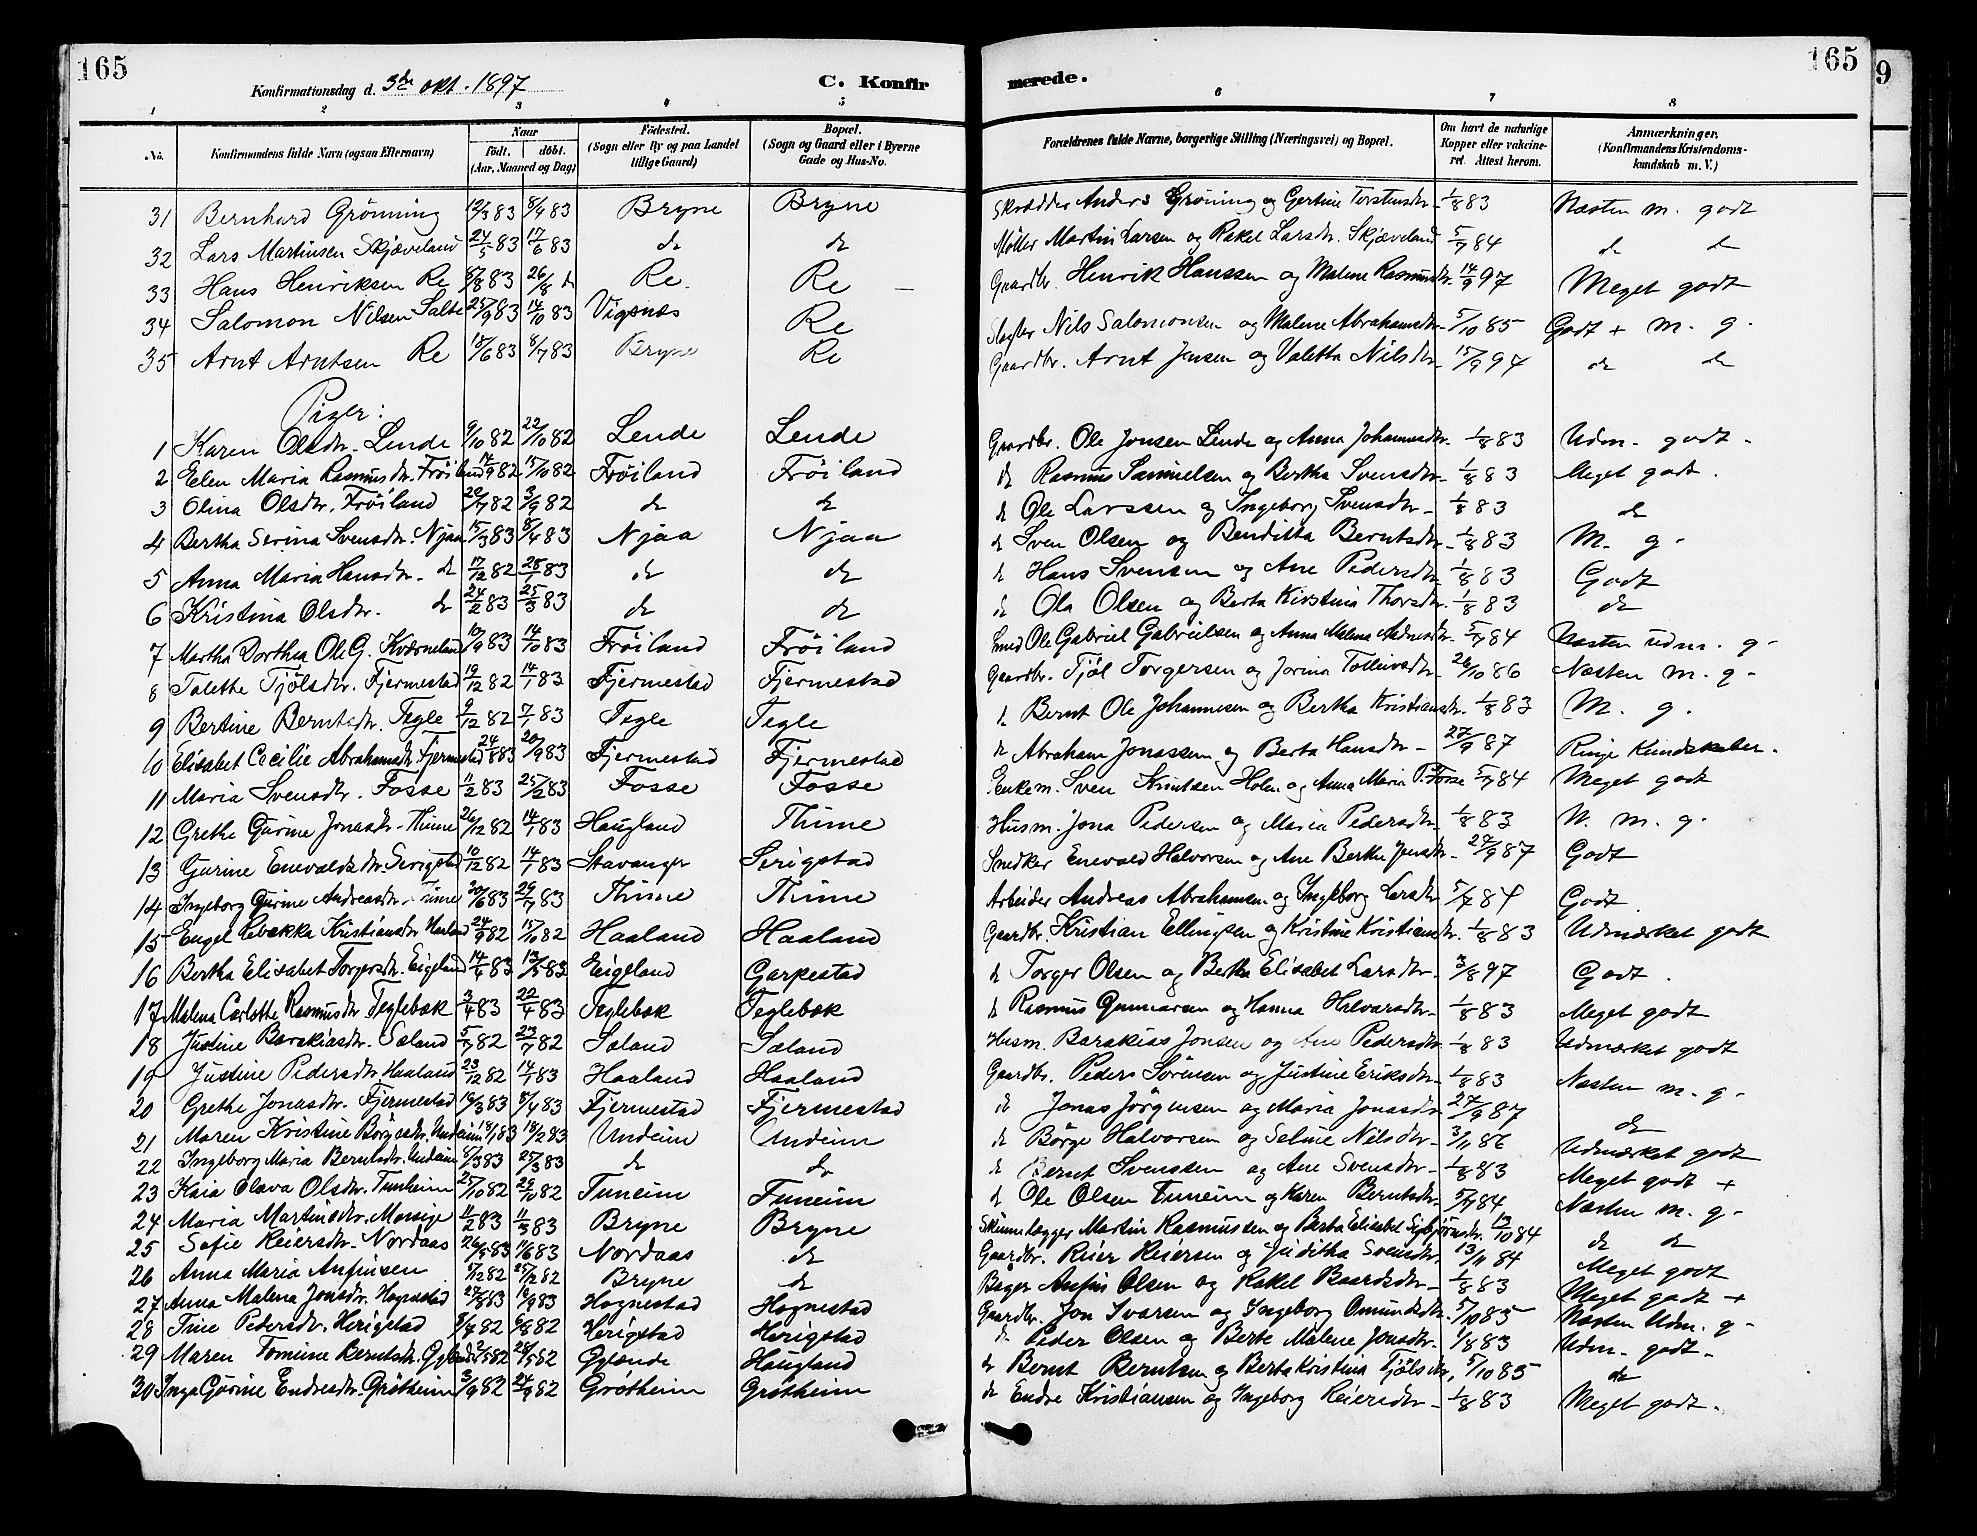 165
165
9
Konfirmationsdag d. 3die Okt. 1897
C. Konfir
merede.
1 2 3 4 5 6 7 8
No. Konfirmandens fulde Navn (ogsaa Efternavn) Naar født. døbt. (Aar, Maaned og Dag) Fødested. (Sogn eller By og paa Landet tillige Gaard) Bopæl. (Sogn og Gaard eller i Byerne Gade og Hus-No. Forældrenes fulde Navne, borgerlige Stilling (Næringsvei) og Bopæl. Om havt de naturlige Kopper eller vakcineret. Attest herom. Anmærkninger. (Konfirmandens Kristendomskundskab m. V.)
31 Bernhard Grønning 12/3 83 8/4 83 Bryne Bryne Skrædder Anders Grøning og Gertine Torstensdr. 1/8 83 Næsten m. godt
32 Lars Martinsen Skjæveland 24/5 83 17/6 83 do do Møller Martin Larsen og Rakel Larsdr. Skjæveland 5/7 84 do do
33 Hans Henriksen Re /8 83 26/8 do Re Re Gaardbr. Henrik Hanssen og Malene Rasmusdr. 14/9 97 Meget godt
34 Salomon Nilsen Salte 25/9 83 14/10 83 Vigsnes Re Slagter Nils Salomonsen og Malene Abrahamsdr. 5/10 85 Godt + m. g.
35 Arnt Arntsen Re /6 83 8/7 83 Bryne Re Gaardbr. Arnt Jensen og Valetta Nilsdr. 15/9 94 do do
Piger:
1 Karen Olsdr. Lende 9/10 82 22/10 82 Lende Lende Gaardbr. Ole Jonsen Lende og Anna Johannesdr. 1/8 83 Udm. godt
2 Elen Maria Rasmusdr. Frøiland 14/9 82 15/10 82 Frøiland Frøiland do Rasmus Samuelsen og Bertha Svensdr. 1/8 83 Meget godt.
3 Olina Olsdr. Frøiland 20/7 82 3/9 82 do do do Ole Larssen og Ingeborg Svensdr. 1/8 83 do
4 Bertha Serina Svensdr. Njaa 15/3 83 8/4 83 Njaa Njaa do Sven Olsen og Benditta Berntsdr. 1/8 83 M. g.
5 Anna Maria Hansdr. do 17/12 82 28/1 83 do do do Hans Svensen og Ane Pedersdr. 1/8 83 Godt
6 Kristina Olsdr. do 24/2 83 25/3 83 do do do Ola Olsen og Berta Kirstina Thorsdr. 1/8 83 do
7 Martha Dorthea Ole G. Kværneland 10/9 83 14/10 83 Frøiland Frøiland Smed Ole Gabriel Gabrielsen og Anna Malena Aadnesdr. 5/7 84 Næsten udm. g.
8 Talette Tjølsdr. Fjermestad 19/12 82 14/1 83 Fjermestad Fjermestad Gaardbr. Tjøl Torgersen og Jorina Tolleivsdr. 26/10 86 Næsten m. g.
9 Bertine Berntsdr. Tegle 9/12 82 7/1 83 Tegle Tegle do Bernt Ole Johannesen og Bertha Kristiansdr. 1/8 83 M. g.
10 Elisabet Cecilie Abrahamsdr. Fjermestad 24/8 83 20/9 83 Fjermestad Fjermestad do Abraham Jonassen og Berta Hansdr. 27/9 87 Ringe Kundskaber.
11 Maria Svensdr. Fosse 11/2 83 25/2 83 Fosse Fosse Enkem. Sven Knutsen Holen og Anna Maria P. Fosse 5/7 84 Meget godt
12 Grethe Gurine Jonasdr. Thime 26/12 82 14/1 83 Haugland Thime Husm. Jona Pedersen og Maria Pedersdr. 1/8 83 N. m. g.
13 Gurine Enevaldsdr. Serigstad 10/12 82 14/1 83 Stavanger Serigstad Snedker Enevald Halvorsen og Ane Berthe Jensdr. 27/9 87 Godt
14 Ingeborg Gurine Andreasdr. Time 20/6 83 29/7 83 Thime Thime Arbeider Andreas Abrahamsen og Ingeborg Larsdr. 5/7 84 Godt
15 Engel Rebekka Kristiansdr. Haaland 24/9 82 15/10 82 Haaland Haaland Gaardbr. Kristian Ellingsen og Kristine Kristiansdr. 1/8 83 Udmærket godt
16 Bertha Elisabet Torgersdr. Eigeland 14/4 83 13/5 83 Eigeland Garpestad do Torger Olsen og Bertha Elisabet Larsdr. 3/8 97 Godt.
17 Malena Carlotte Rasmusdr. Teglebæk 3/4 83 22/4 83 Teglebæk Teglebæk do Rasmus Gunnarsen og Hanna Halvorsdr. 1/8 83 Meget godt
18 Justine Barakiasdr. Sæland 5/7 82 23/7 82 Sæland Sæland Husm. Barakias Jonsen og Ane Pedersdr. 1/8 83 Udmærket godt
19 Justine Pedersdr. Haaland 23/12 82 14/1 83 Haaland Haaland Gaardbr. Peders Sørensen og Justine Eriksdr. 1/8 83 Næsten m. g.
20 Grethe Jonasdr. Fjermestad 16/3 83 8/4 83 Fjermestad Fjermestad do Jonas Jørgensen og Maria Jonasdr. 27/9 87 do
21 Maren Kristine Børgesdr. Undeim 18/1 83 18/2 83 Undeim Undeim do Børge Halvorsen og Seline Nilsdr. 3/11 86 Udmærket godt
22 Ingeborg Maria Berntsdr. Undeim 8/3 83 25/3 83 do do do Bernt Svenssen og Ane Svensdr. 1/8 83 Meget godt +
23 Kaia Olava Olsdr. Tunheim 25/10 82 29/10 82 Tuneim Tuneim do Ole Olsen Tuneim og Karen Berntsdr. 5/7 84 Næsten m. g.
24 Maria Martinsdr. Mossige 11/2 83 11/3 83 Bryne Bryne Skindlægger Martin Rasmussen og Berta Elisabet Sigbjørnsdr. 13/10 84 do do
25 Sofie Reiersdr. Nordaas 26/5 83 1/6 83 Nordaas do Gaardbr. Reier Reiersen og Juditha Svensdr. 13/11 84 Meget godt
26 Anna Maria Anfinsen /12 82 25/12 82 Bryne do Bager Anfin Olsen og Rakel Baardsdr. 1/8 83 Meget godt +
27 Anna Malena Jonsdr. Hognestad 27/8 83 16/9 83 Hognestad Hognestad Gaardbr. Jon Ivarsen og Ingeborg Omundsdr. 5/10 85 Næsten Udm. g.
28 Tine Pedersdr. Herigstad 82 6/8 82 Herigstad Herigstad do Peder Olsen og Berte Malene Jonsdr. 1/8 83 Udm. godt.
29 Maren Tomine Berntsdr. 5 82 28/5 82 Haugland do Bernt Berntsen og Berta Kristina Tjølsdr. 5/10 85 do
30 Inga Gurine Endresdr. Grøtheim 3/9 82 24/9 82 Grøtheim Grøtheim do Endre Kristiansen og Ingeborg Reiersdr. 1/8 83 Meget godt.